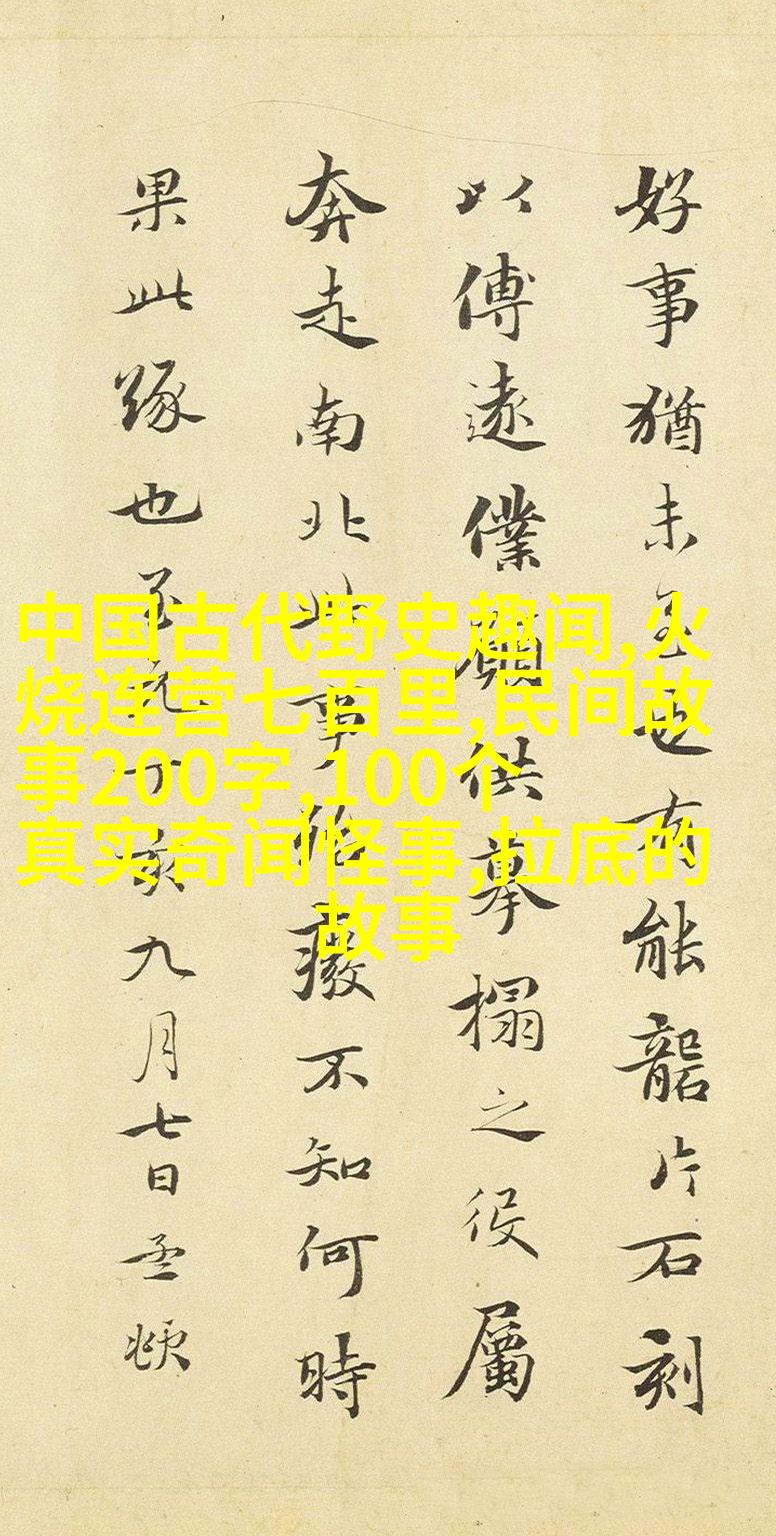 好事猶未至也有能礱片石刻
以傳遠僕願供摹搨之役屬
奔走南北此事殆廢不知何時
果此緣也至元丁亥九月七日孟頫
中国古代野史趣闻,火
烧连营七百里,民间故
事200字,100个
真实奇闻怪事,拉底的
故事